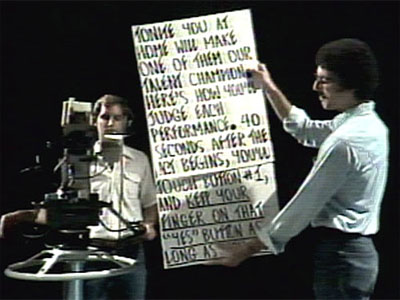 TONITE YOU AT
HOME WILL MAKE
ONE OF THEM OUR
TALENT CHAMPION.
HERE'S HOW YOU'LL
JUDGE EACH
PERFORMANCE. 40
SECONDS AFTER THE
ACT BEGINS, YOU'LL
TOUCH BUTTON #1,
AND KEEP YOUR
FINGER ON THAT
"YES" BUTTON AS
LONG AS